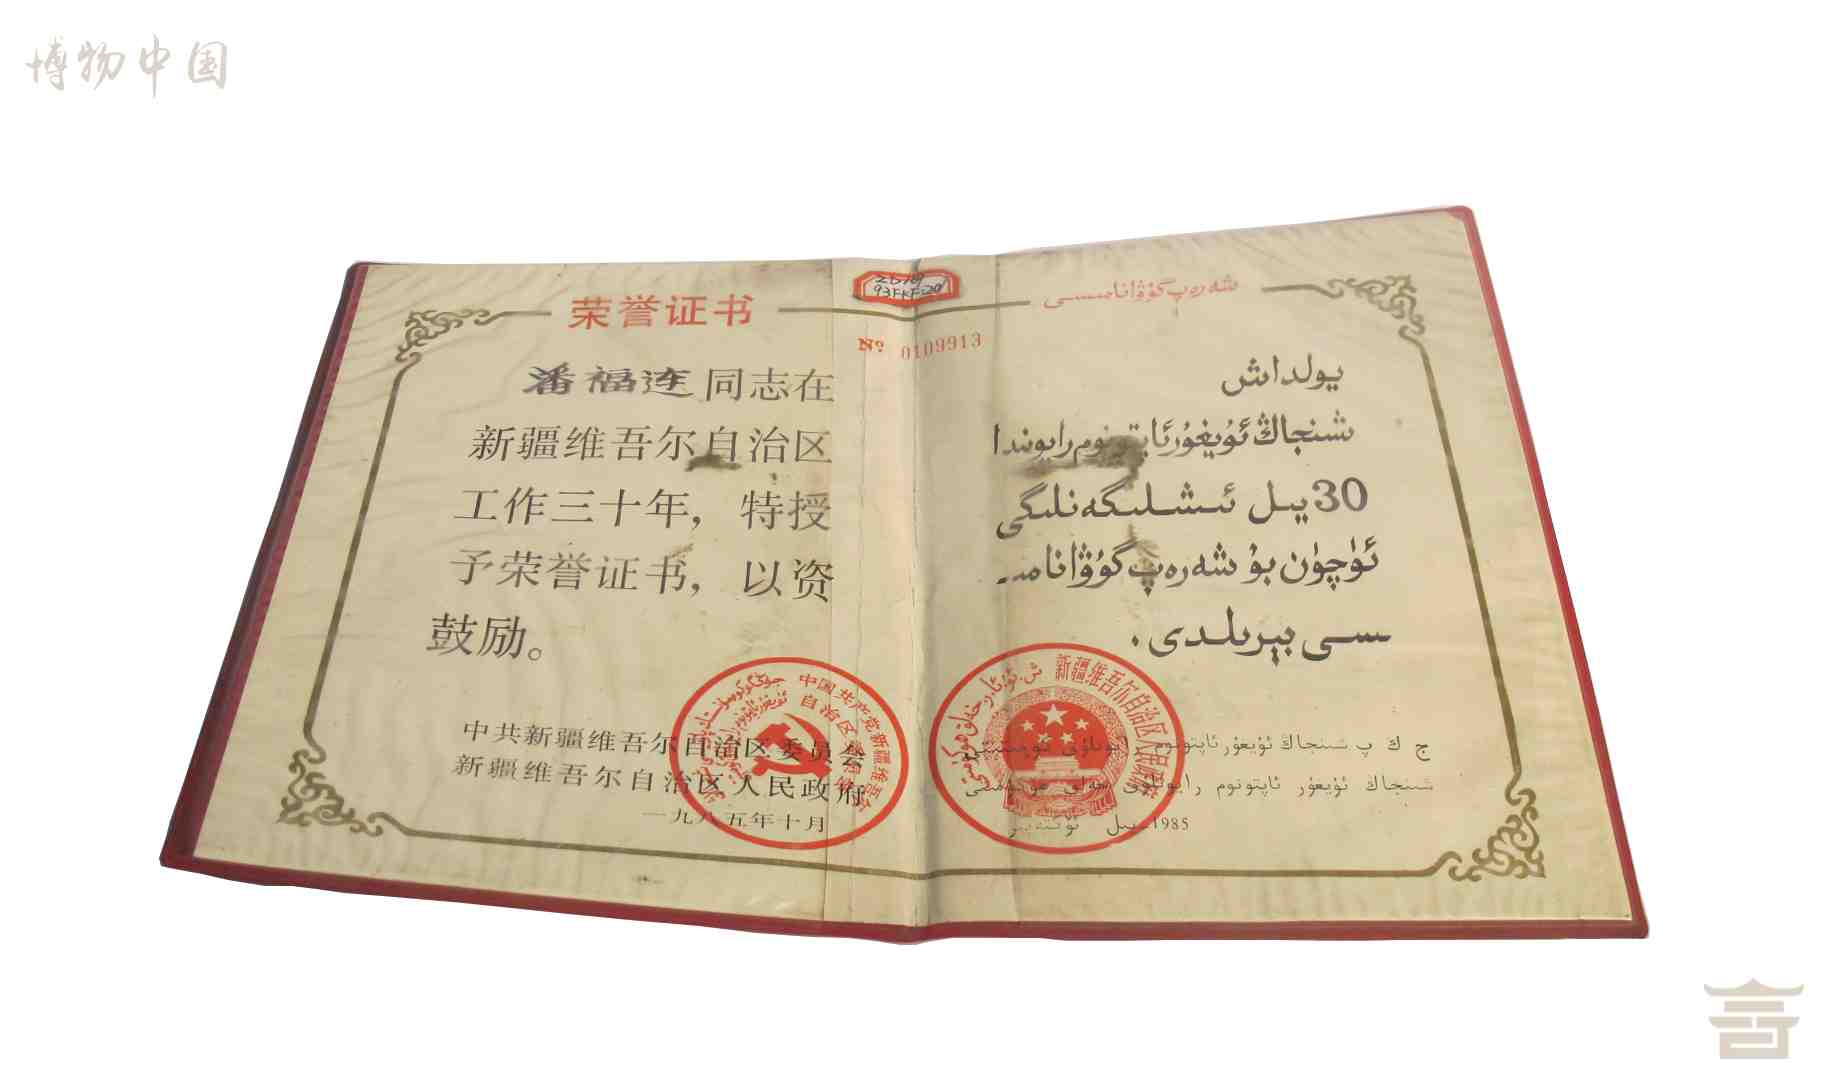 博物中国
荣誉证书
潘福连同志在
新疆维吾尔自治区
工作三十年，特授
予荣誉证书，以资
鼓励。
中共新疆维吾尔自治区委员会
新疆维吾尔自治区人民政府
一九八五年十月
93FKF-20
№ 0109913
شەرەپ گۇۋانامىسى
يولداش
شىنجاڭ ئۇيغۇر ئاپتونوم رايونىدا
30 يىل ئىشلىگەنلىگى
ئۈچۈن بۇ شەرەپ گۇۋانامە-
سى بېرىلدى.
ج ك پ شىنجاڭ ئۇيغۇر ئاپتونوم رايونلۇق كومىتېتى
شىنجاڭ ئۇيغۇر ئاپتونوم رايونلۇق خەلق ھۆكۈمىتى
1985-يىل ئۆكتەبىر
中国共产党新疆维吾尔
自治区委员会
新疆维吾尔自治区人民政府